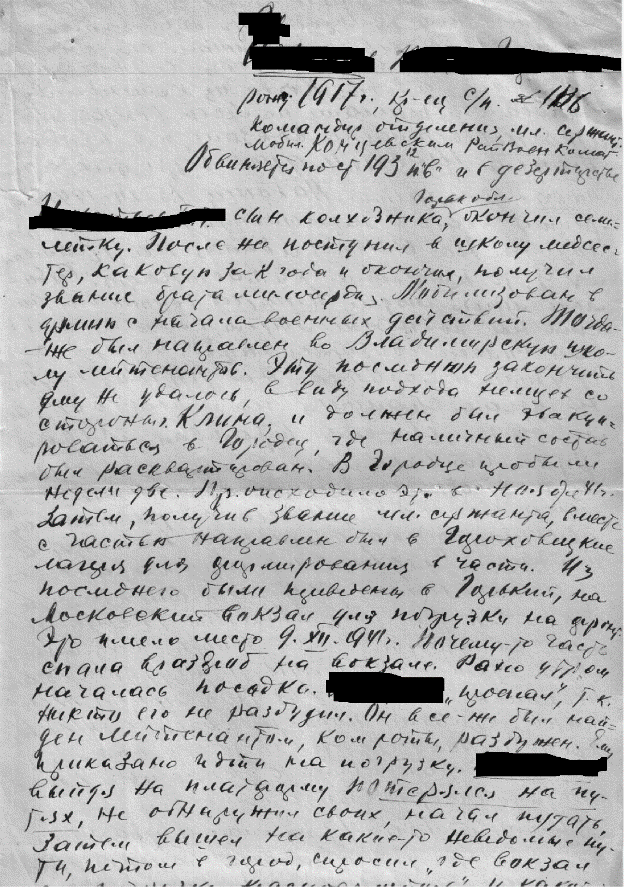 рожд. 1917г., кр-ец с/п.
командир отделения, мл. сержант
мобил. Райвоенкомат
Обвиняется по ст 193 12 п "в" и в дезертирстве
сын колхозника, окончил семи-
летку. После поступил в школу медсес-
тер, каковую за года и окончил, получил
звание брата милосердия. Мобилизован в
армию с начала военных действий. Тогда-
же был направлен во Владимирскую шко-
лу лейтенантов. Эту последнюю закончить
ему не удалось, в виду подхода немцев со
стороны Клина, и должен был эвакуи-
роваться в Городец, где наличный состав
был расквартирован. В Городце пробыли
недели две. Происходило это в ноябре 41г.
Затем, получив звание мл. сержанта, вместе
с частью направлен был в Гороховецкие
лагеря для формирования в части. Из
последнего были приведены в Горький, на
Московский вокзал для погрузки на фронт
Это имело место 9. XII. 1941г. Почему-то часть
спала вразброд на вокзале. Рано утром
началась посадка. "проспал", т.к.
никто его не разбудил. Он все-же был най-
ден лейтенантом, ком роты, разбужен. Ему
приказано идти на погрузку.
выйдя на платформу потерялся на пу-
тях, не обнаружил своих, начал путать,
затем вышел на какие-то неведомые пу-
ти, потом в город, спросил, "где вокзал